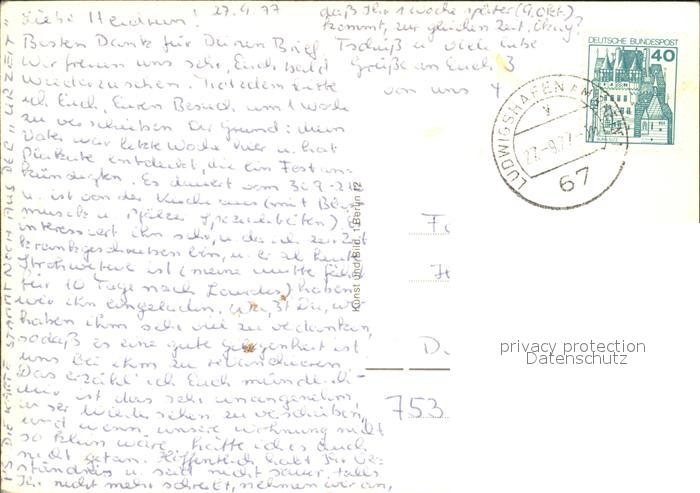 27.9.77
Liebe Heidrun!
Besten Dank für Deinen Brief
Wir freuen uns sehr, Euch bald
wiederzusehen. Trotzdem bitte
ich Euch, Euren Besuch um 1 Woche
zu verschieben. Der Grund: mein
Vater war letzte Woche hier u. hat
Plakate entdeckt, die ein Fest an-
kündigten. Es dauert vom 30.9.-2.10.
u. ist von der Küche aus (mit Blas-
musik u. Pfälzer Spezialitäten) Es
interessiert ihn sehr, u. da ich zur Zeit
krankgeschrieben bin, u. er zu Hause
Strohwitwer ist (meine Mutter fährt
für 10 Tage nach Lourdes) haben
wir ihn eingeladen. Weißt Du, wir
haben ihm sehr viel zu verdanken,
sodaß es eine gute Gelegenheit ist
uns bei ihm zu revanchieren.
Das erzähl' ich Euch mündlich.
Mir ist das sehr unangenehm,
unser Wiedersehen zu verschieben,
und wenn unsere Wohnung nicht
so klein wäre, hätte ich es auch
nicht getan. Hoffentlich habt Ihr Ver-
ständnis u. seid nicht sauer. Falls
Ihr nicht mehr schreibt, nehmen wir an,
daß Ihr 1 Woche später (9. Okt.)
kommt, zur gleichen Zeit. Okay?
Tschüß u. viele liebe
Grüße an Euch 3
von uns 4
DIE KARTE STAMMT NOCH AUS DER "URZEIT"
Kunst und Bild, 1 Berlin 12
DEUTSCHE BUNDESPOST
40
LUDWIGSHAFEN AM RHEIN
27.-9.77
67
753
privacy protection
Datenschutz